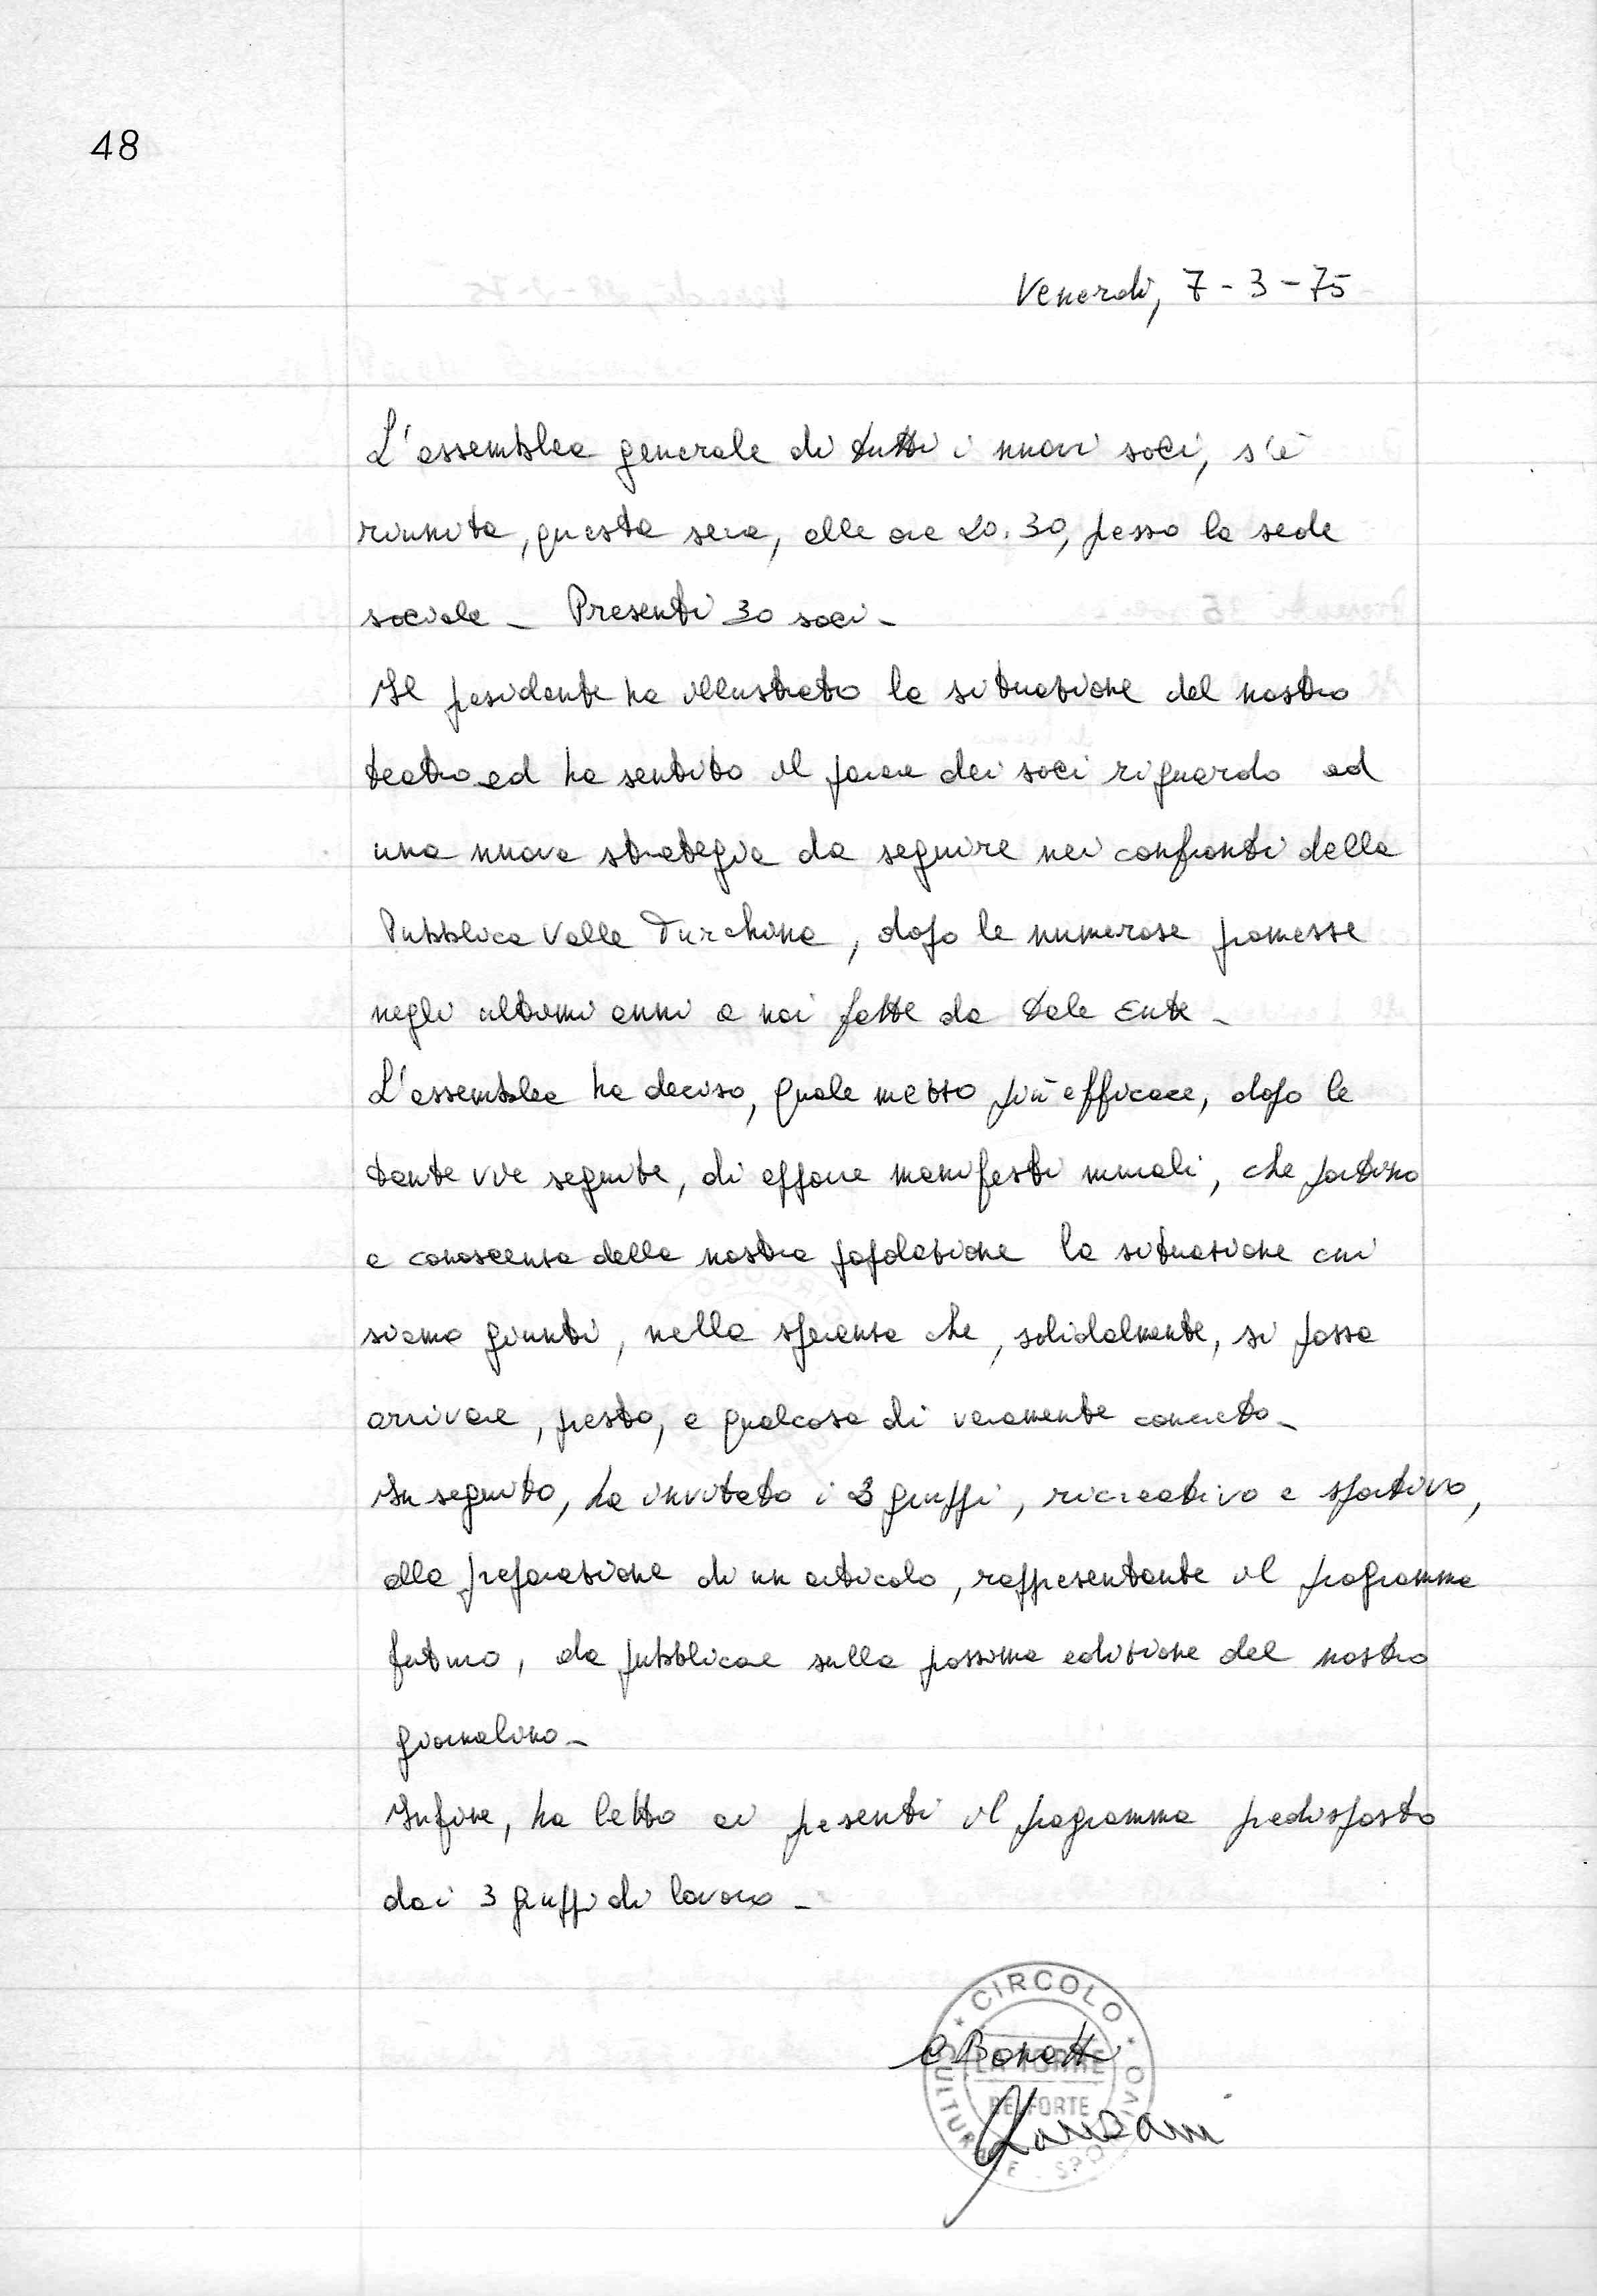 48
Venerdì, 7-3-75
L'assemblea generale di tutti i nuovi soci, s'è
riunita, questa sera, alle ore 20.30, presso la sede
sociale _ Presenti 30 soci _
Il presidente ha illustrato la situazione del nostro
teatro ed ha sentito il parere dei soci riguardo ad
una nuova strategia da seguire nei confronti della
Pubblica Valle Turchina, dopo le numerose promesse
negli ultimi anni a noi fatte da tale Ente _
L'assemblea ha deciso, quale mezzo più efficace, dopo le
tante vie seguite, di apporre manifesti murali, che portino
a conoscenza della nostra popolazione la situazione cui
siamo giunti, nella speranza che, solidalmente, si possa
arrivare, presto, a qualcosa di veramente concreto _
In seguito, ha invitato i gruppi, ricreativo e sportivo,
alla preparazione di un articolo, rappresentante il programma
futuro, da pubblicare sulla prossima edizione del nostro
giornalino _
Infine, ha letto ai presenti il programma predisposto
dai 3 gruppi di lavoro _
CIRCOLO
BELFORTE